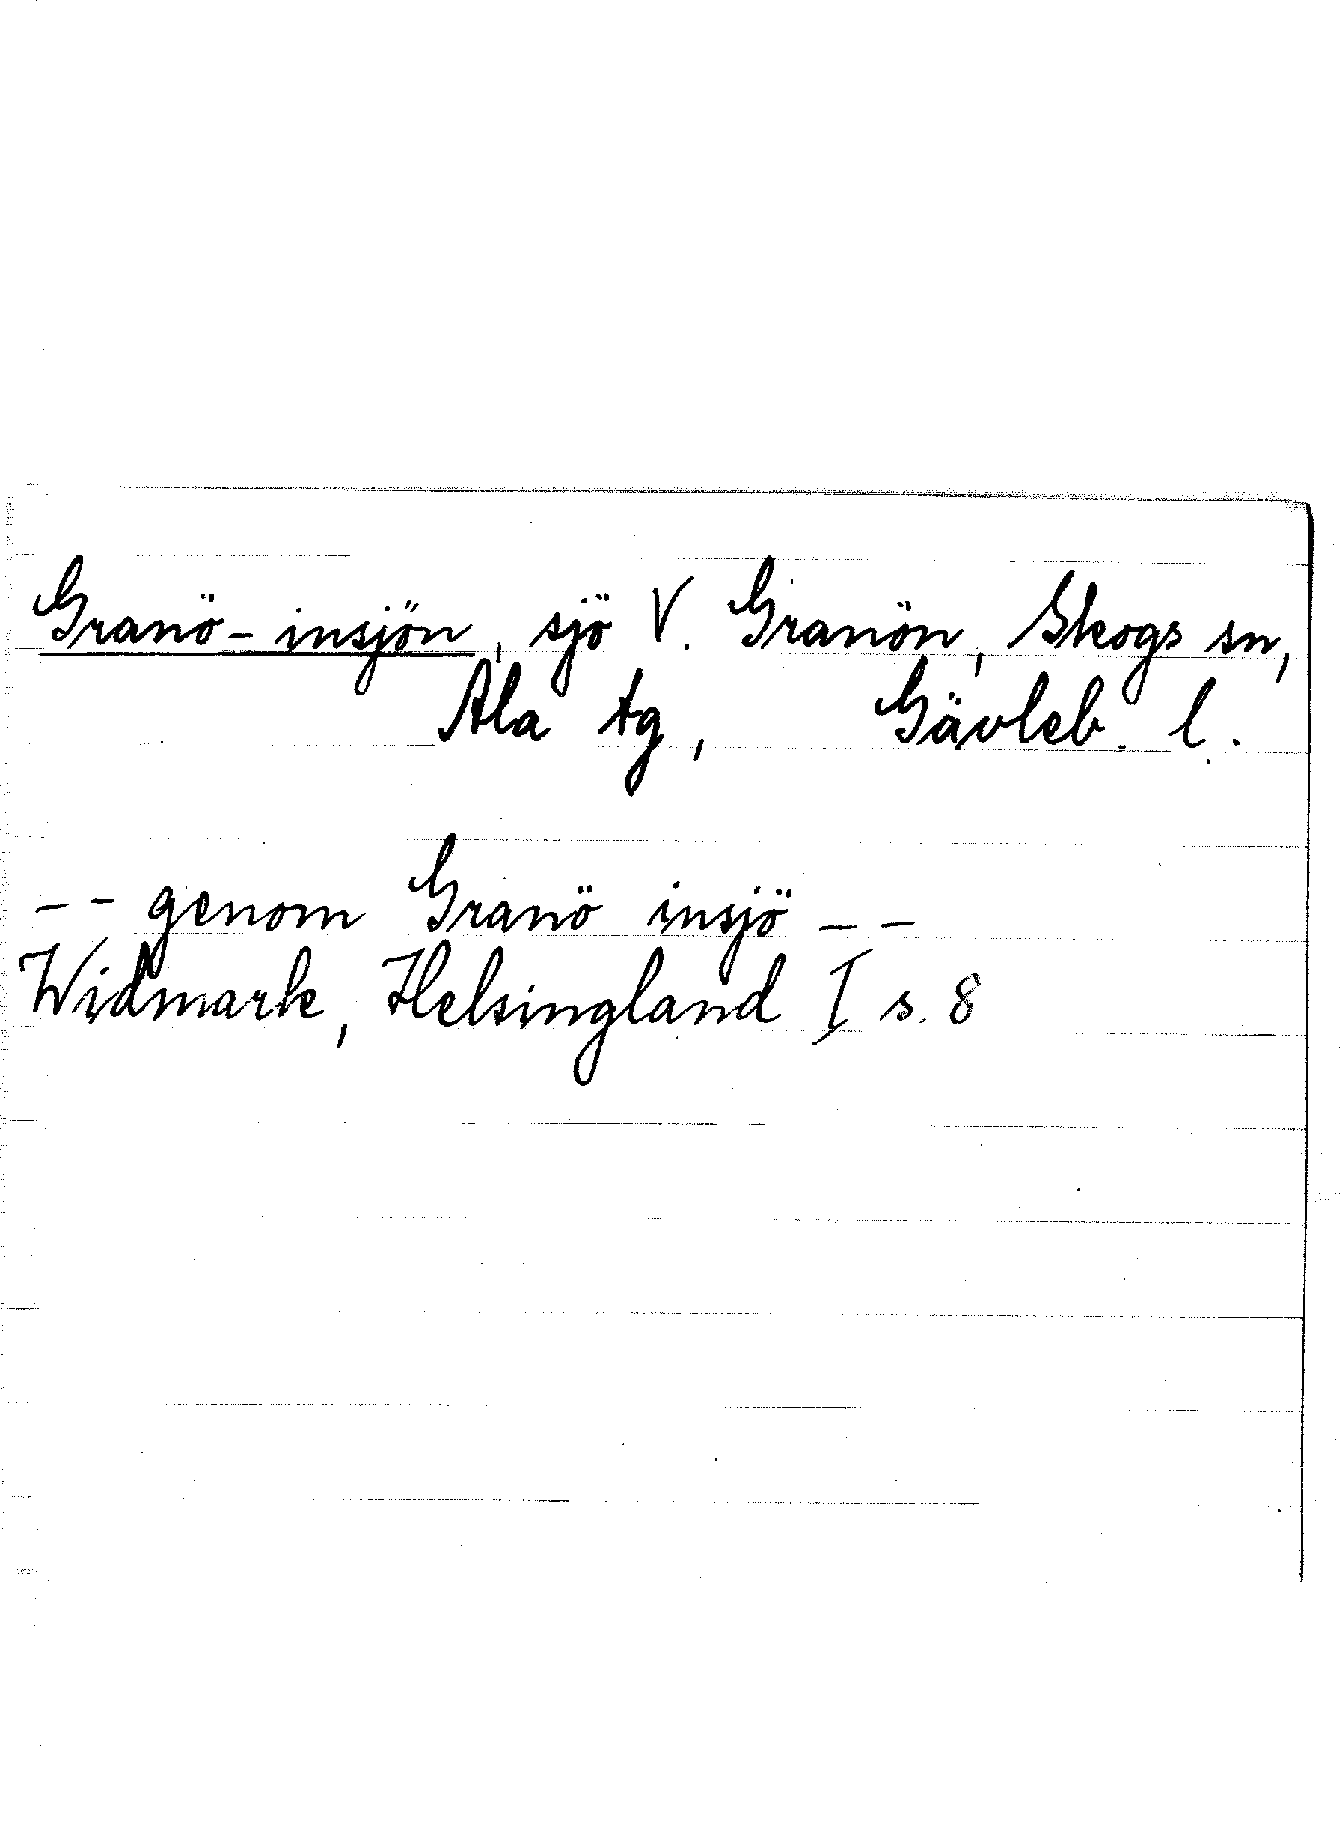 Granö-insjön, sjö V. Granön, Skogs sn,
Ala tg, Gävleb. l.
-- genom Granö insjö --
Widmark, Helsingland I s. 8